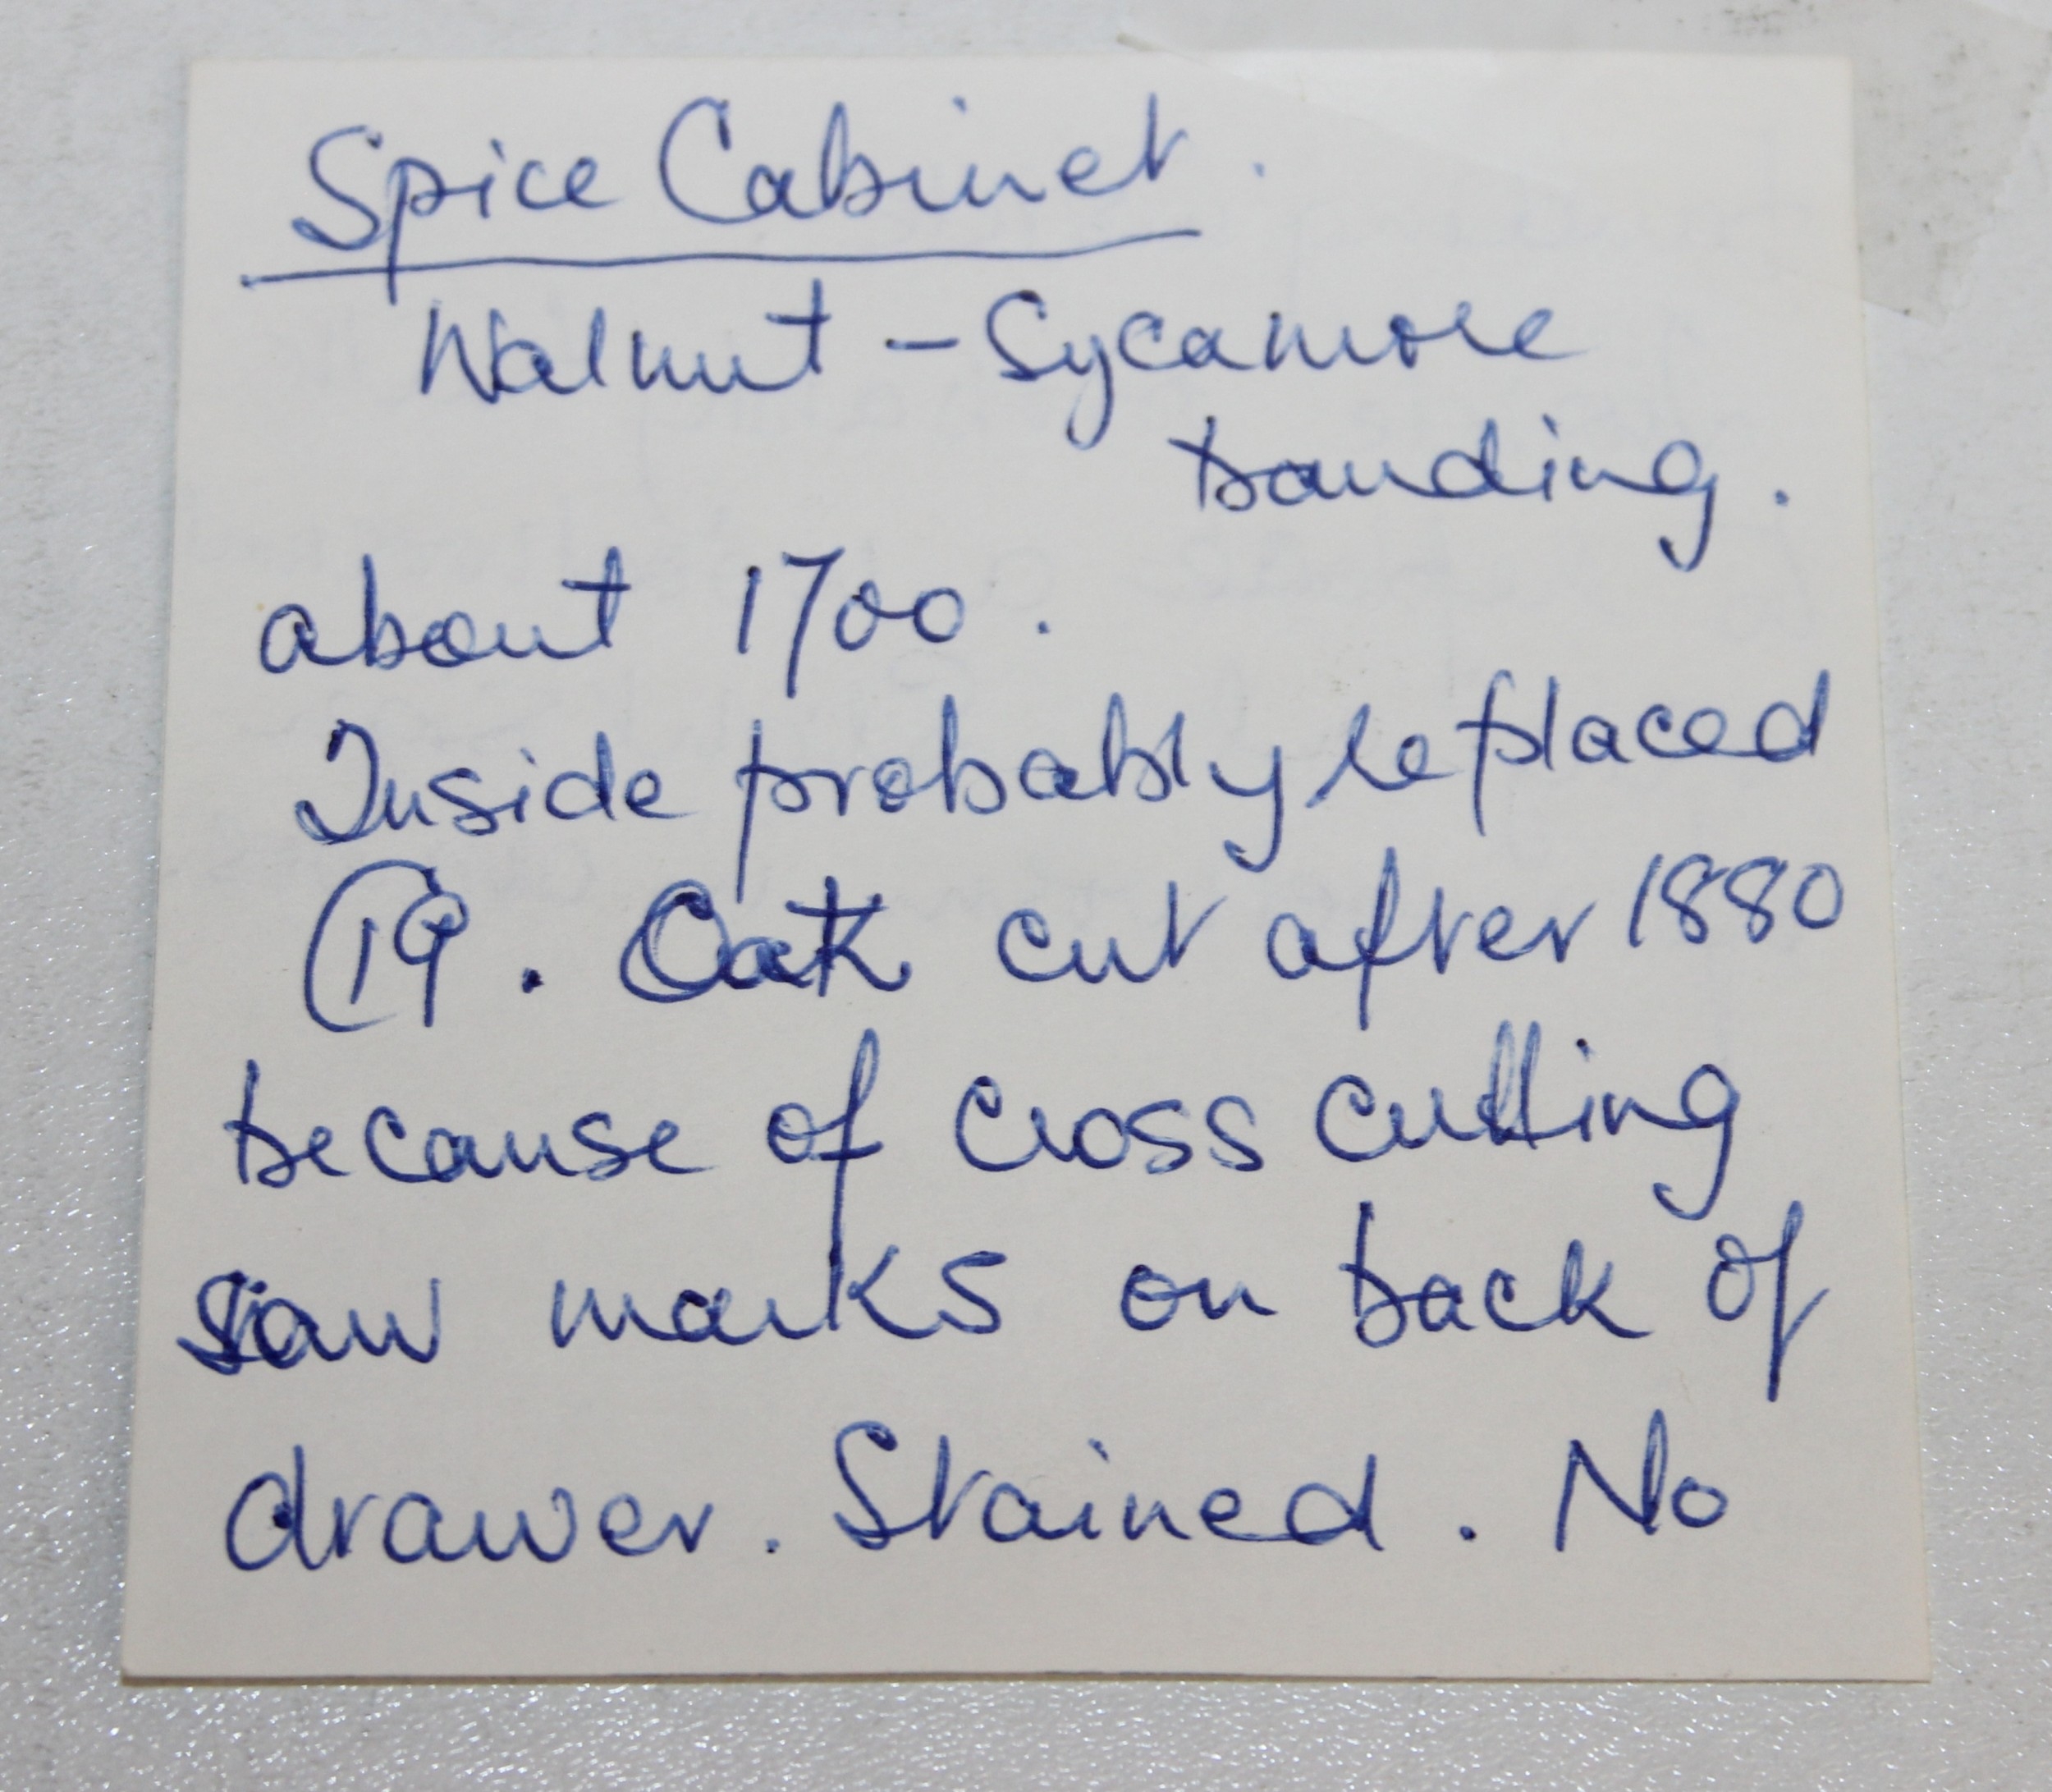 Spice Cabinet.
Walnut - Sycamore
banding.
about 1700.
Inside probably replaced
C19. Oak cut after 1880
because of cross cutting
saw marks on back of
drawer. Stained. No